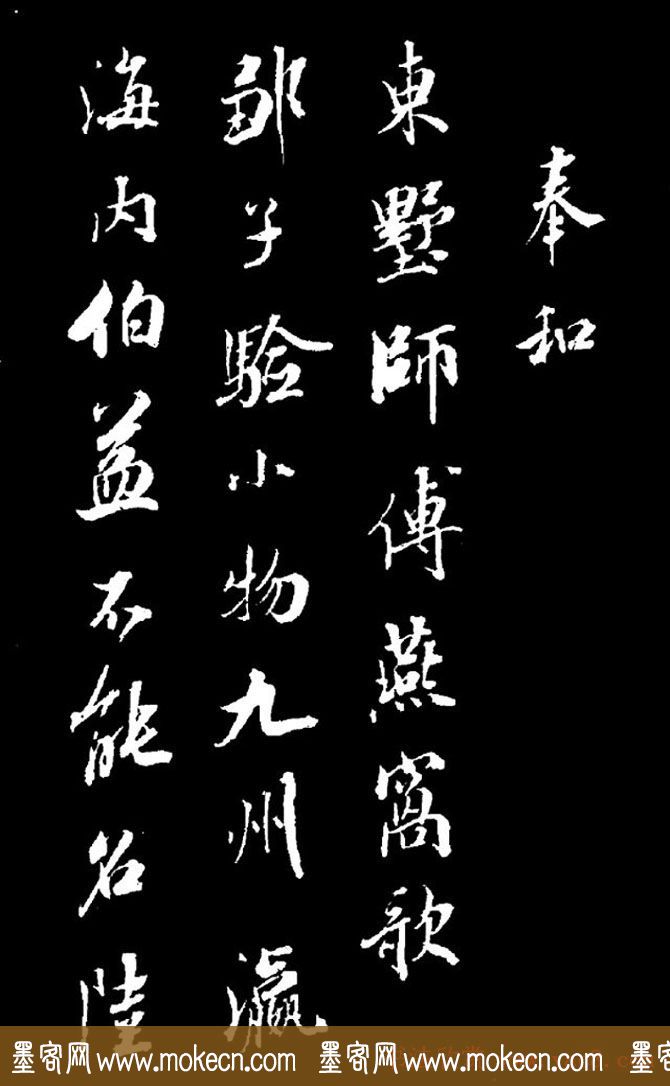 奉和
東墅師傅燕窩歌
鄒子驗小物九州瀛
海內伯益不能名陸
墨客网 www.mokecn.com 墨客网 www.mokecn.com 墨